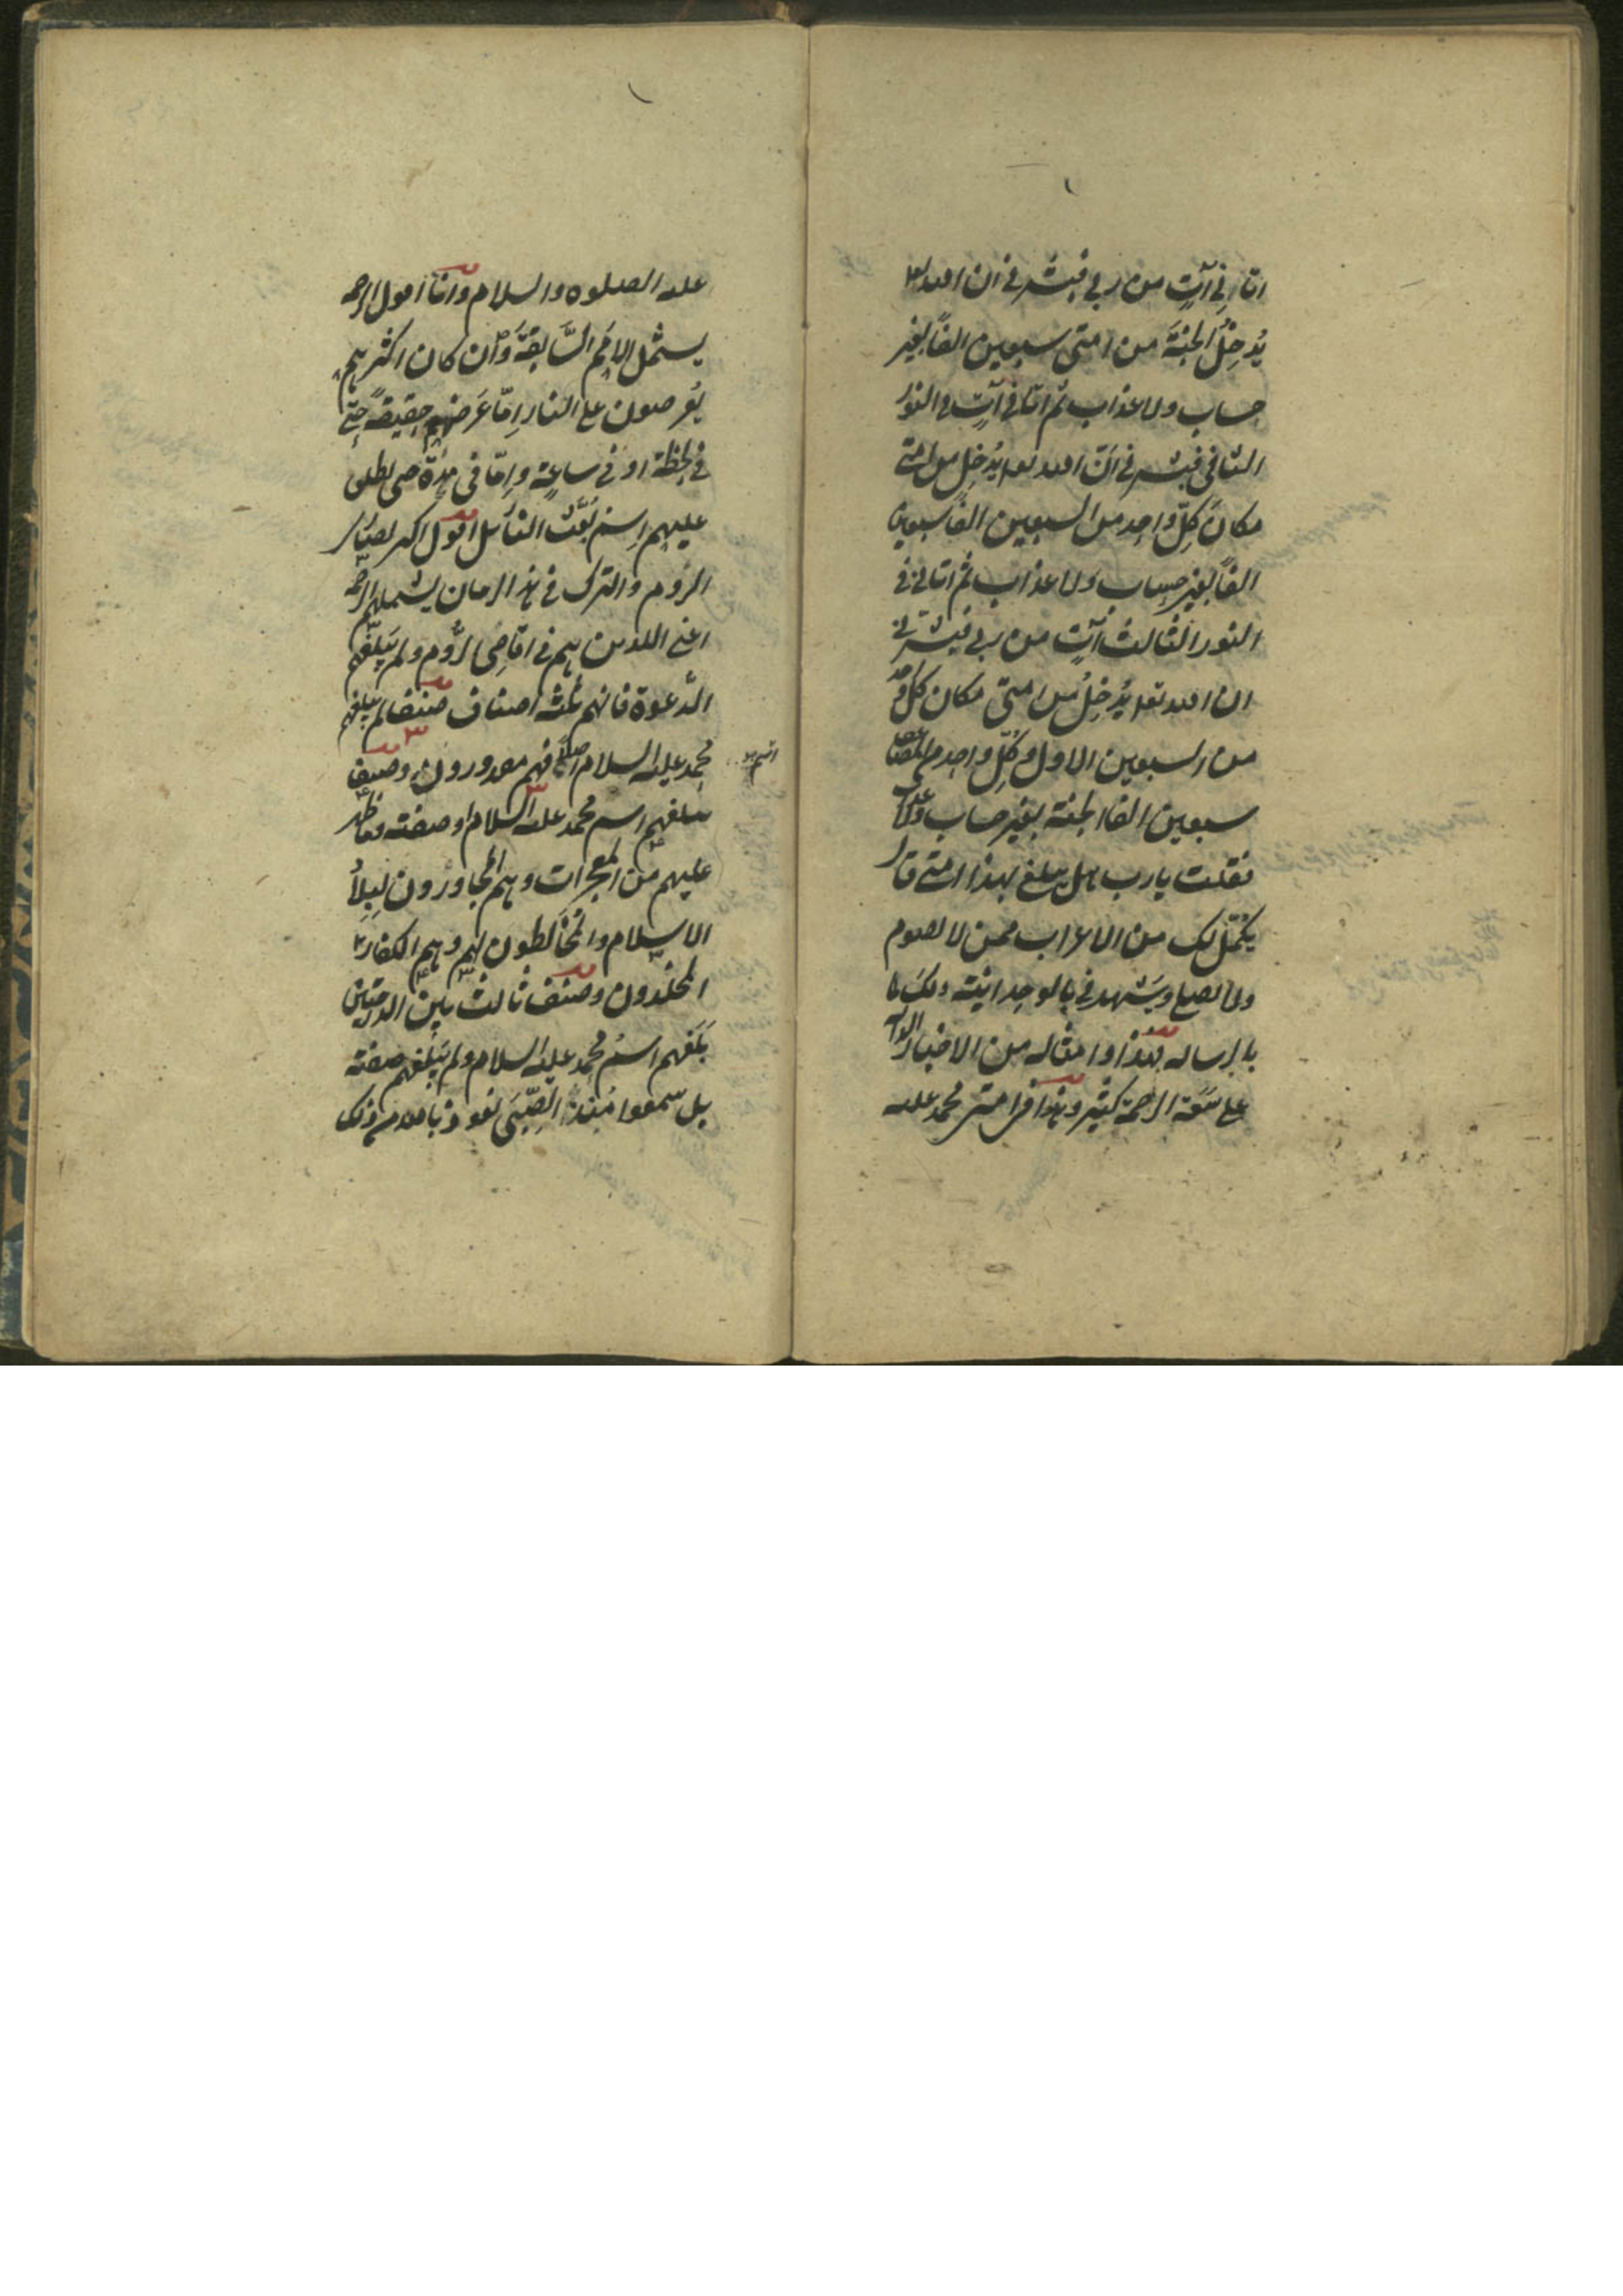 اتانى آتٍ من ربى فبشرنى ان الله تعا
يُدخِلُ الجنةَ من امتى سبعين الفاً بغير
حساب ولا عذاب ثم اتانى آتٍ فى النور
الثانى فبشرنى انّ الله تعا يُدخِل من امتى
مكانَ كلِّ واحد من السبعين الفا سبعين
الفاً بغير حساب ولا عذاب ثم اتانى فى
النور الثالث آتٍ من ربى فبشرنى
ان الله تعا يُدخِلُ من امتى مكان كل واحد
من السبعين الاول وكلّ واحد من المضاعف
سبعين الفا الجنة بغير حساب ولا عذاب
فقلت يارب هل يبلغ هذا امتى قال
يكمّل لك من الاعراب ممن لا يصوم
ولا يصلى ويشهد فى بالوحدانية ولك
بالرساله فهذا وامثاله من الاخبار الدالة
على سَعَة الرحمة كثير وهذا فى امة محمد عليه
عليه الصلوه والسلام وانا اقول الرحمة
يشمل الامم السَّابقةَ وان كان اكثرهم
يُعرضون على النار اِمّا عَرضهم حقيقةً حتى
فى لحظة او فى ساعة واِمّا فى مدّة حتى يطلق
عليهم اسم بَعْث النار بل اقول اكثر نصارى
الروم والترك فى هذا الزمان يشملهم الرحمة
اعنى اللذين هم فى اقاصى الرُّوم ولم يَبلغهم
الدَّعوة فانهم ثلثة اصناف صنف لم يبلغهم
اسم
محمد عليه السلام اصلاً فهم معذورون وصنف
بلغهم اسم محمد عليه السلام وصفته وما ظهر
عليهم من المعجزات وهم المجاورون لبلاد
الاسلام والمخالطون لهم وهم الكفار
المخلّدون وصنف ثالث بين الدرجتين
بَلَغهم اسمُ محمد عليه السلام ولم يَبلغهم صفته
بل سمعوا مُنذ الصِّبَى نعوذ بالله من ذلك